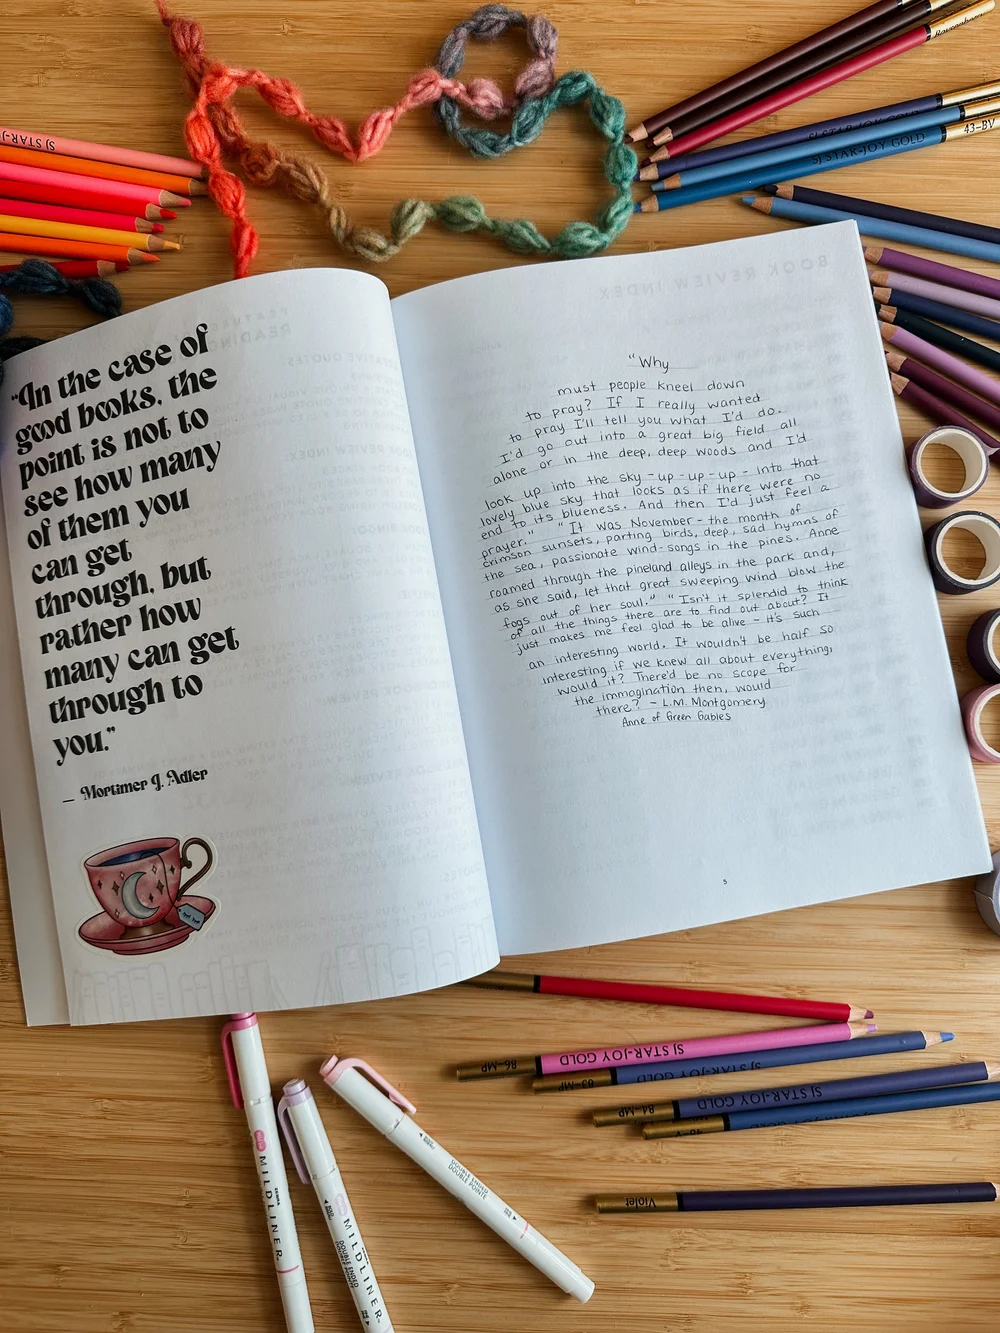 SJ STAR-J
SJ STAR-JOY GOLD
43-BV
SJ STAR-JOY GOLD
BOOK REVIEW INDEX
"In the case of
good books, the
point is not to
see how many
of them you
can get
through, but
rather how
many can get
through to
you."
— Mortimer J. Adler
"Why
must people kneel down
to pray? If I really wanted
to pray I'll tell you what I'd do.
I'd go out into a great big field all
alone or in the deep, deep woods and I'd
look up into the sky-up-up-up- into that
lovely blue sky that looks as if there were no
end to its blueness. And then I'd just feel a
prayer." "It was November- the month of
crimson sunsets, parting birds, deep, sad hymns of
the sea, passionate wind-songs in the pines. Anne
roamed through the pineland alleys in the park and,
as she said, let that great sweeping wind blow the
fogs out of her soul." "Isn't it splendid to think
of all the things there are to find out about? It
just makes me feel glad to be alive - it's such
an interesting world. It wouldn't be half so
interesting if we knew all about everything,
would it? There'd be no scope for
the immagination then, would
there? - L.M. Montgomery
Anne of Green Gables
5
86-MP SJ STAR-JOY GOLD
83-MP SJ STAR-JOY GOLD
84-MP SJ STAR-JOY GOLD
Violet
ZEBRA
MILDLINER
ZEBRA
MILDLINER
DOUBLE ENDED
DOUBLE POINTE
DOUBLE ENDED
DOUBLE POINTE